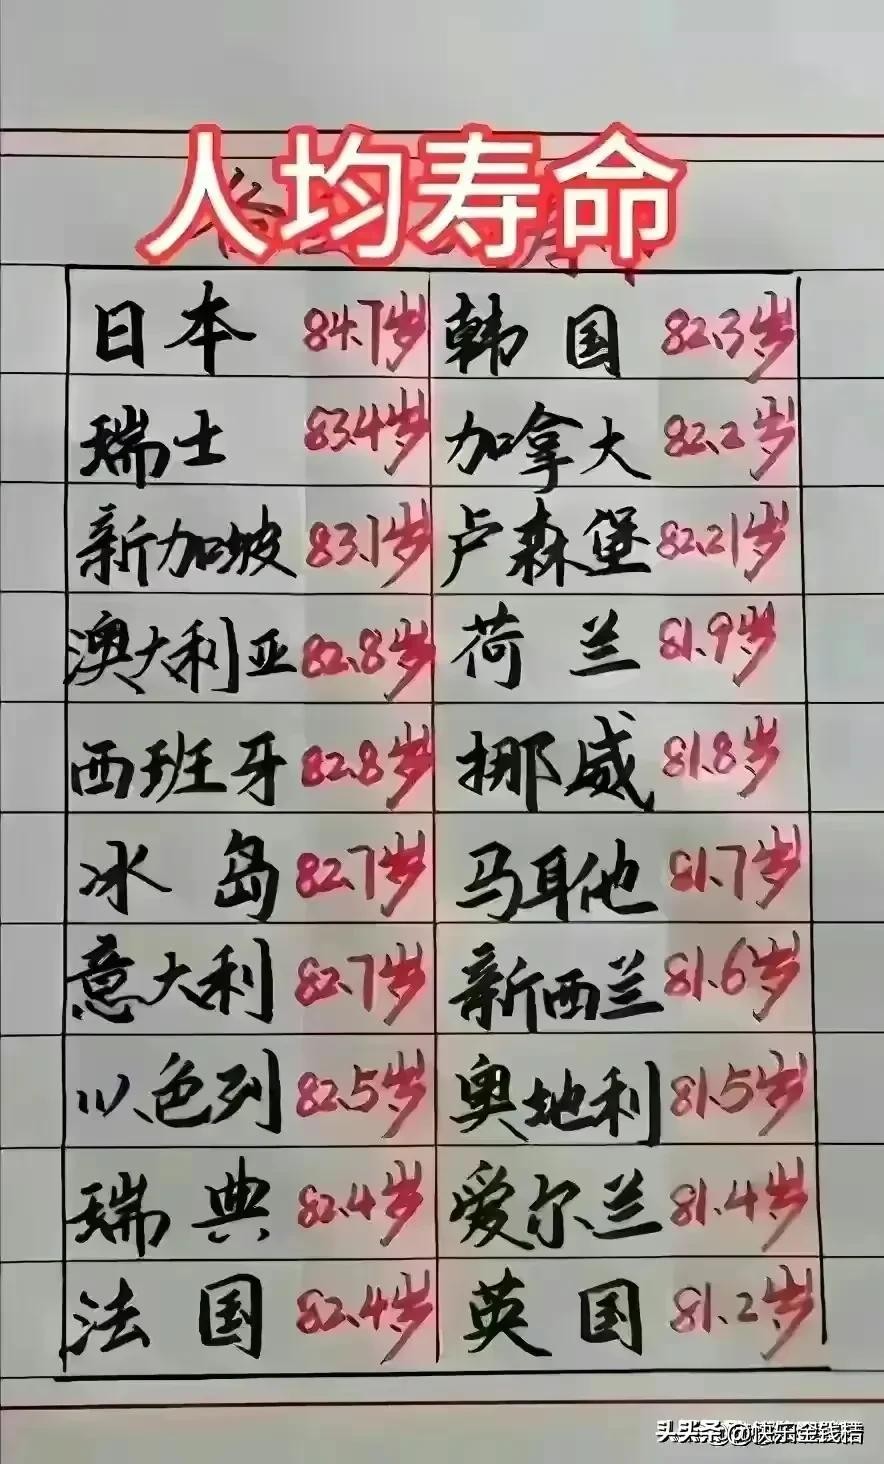 人均寿命
日本 84.7岁 韩国 82.3岁
瑞士 83.4岁 加拿大 82.2岁
新加坡 83.1岁 卢森堡 82.21岁
澳大利亚 82.8岁 荷兰 81.9岁
西班牙 82.8岁 挪威 81.8岁
冰岛 82.7岁 马耳他 81.7岁
意大利 82.7岁 新西兰 81.6岁
以色列 82.5岁 奥地利 81.5岁
瑞典 82.4岁 爱尔兰 81.4岁
法国 82.4岁 英国 81.2岁
头条 @快乐金钱桔